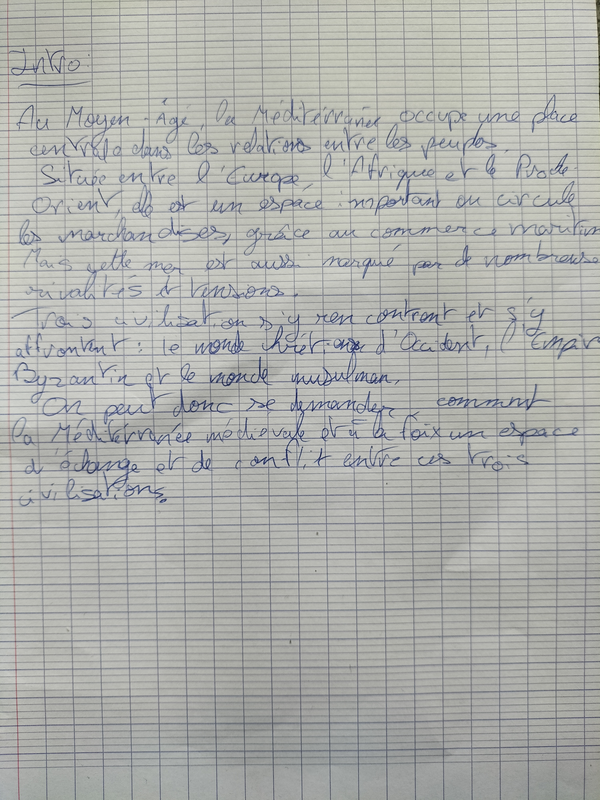 Intro:
Au Moyen-Âge, la Méditerranée occupe une place
centrale dans les relations entre les peuples.
Située entre l'Europe, l'Afrique et le Proche-
Orient, elle est un espace important ou circule
les marchandises, grâce au commerce maritim
Mais cette mer est aussi marqué par de nombreuse
rivalités et tensions.
Trois civilisations s'y rencontront et s'y
affrontent : le monde chrétien d'Occident, l'Empire
Byzantin et le monde musulman.
On peut donc se demander comment
la Méditérranée médievale est à la foix un espace
d'échange et de conflit entre ces trois
civilisations.